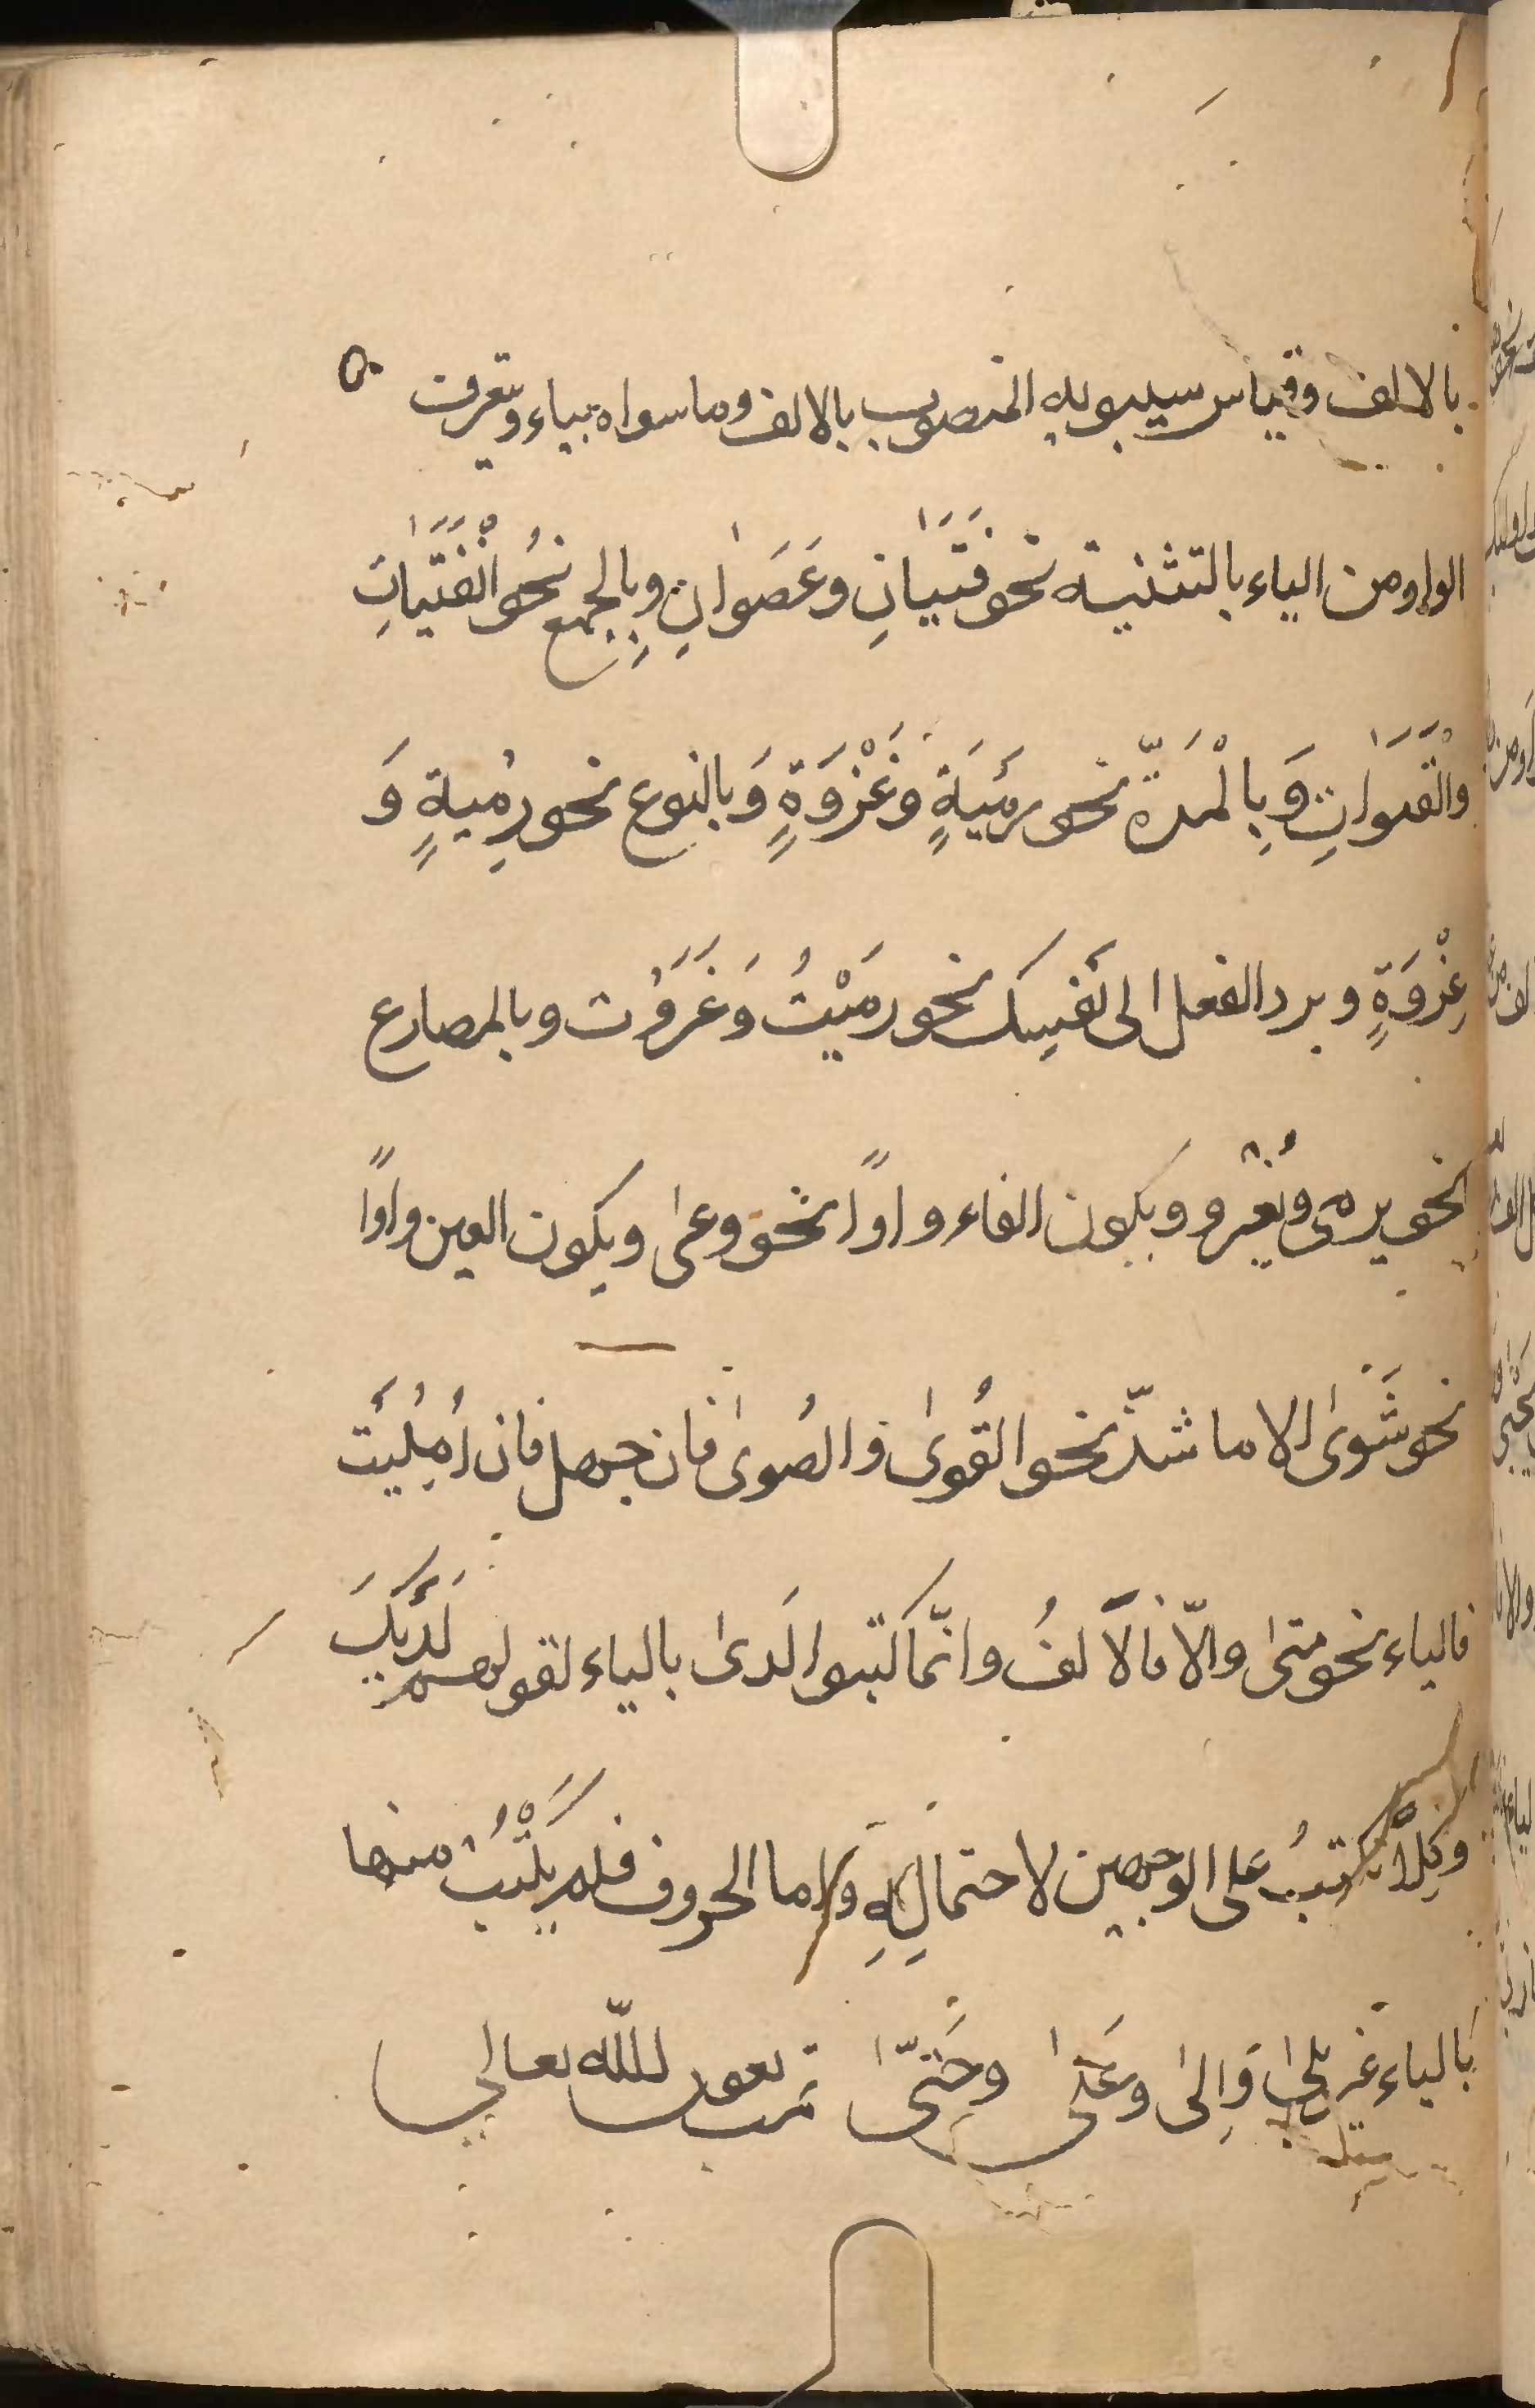 بالالف وقياس سيبويه المنصوب بالالف وما سواه بياء ويتعرف
الواو من الياء بالتثنية نحو فَتَيَانِ وعَصَوٰانِ وبِالجمع نحُو الْفَتَيَاتِ
والْقَنَوٰاتِ وَبِالْمَرّة نحو رمَيَةٍ وغَزْوَةٍ وَبالنوع نحو رِميةٍ وَ
غِزْوَةٍ وبرد الفعل الى نَفسِك نحو رَمَيْتُ وَغَزَوْت وبالمضارع
نحو يرمى ويَغْزُو وبكون الفاء واوًا نحو وعى وبكون العين واوًا
نحو شَوىٰ الا ما شذّ نحو القُوىٰ والصُوىٰ فان جهل فان اُمِليَت
فالياء نحو متىٰ والّا فالالفُ وانّما كتبوا لَدىٰ بالياء لقولهم لَدَيكَ
وكِلَا كتبُ على الوجهين لاحتمالِهِ واما الحروف فلم يكْتُب منها
بالياء غير بلىٰ وَاِلىٰ وعَلىٰ وحَتّىٰ تمت بعون الله تعالى